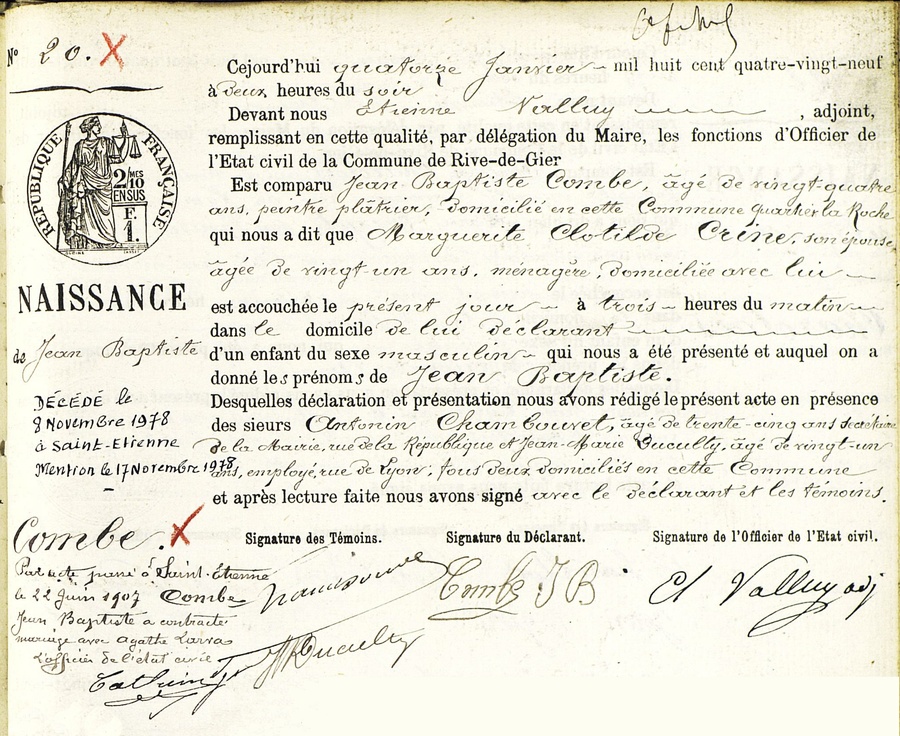 N° 20. X
RÉPUBLIQUE FRANÇAISE
2/MES
10
EN SUS
F.
1.
NAISSANCE
de Jean Baptiste
DÉCÉDÉ le
8 Novembre 1978
à Saint-Etienne
Mention le 17 Novembre 1978
Combe. X
Par acte passé à Saint-Étienne
le 22 Juin 1907 Combe
Jean Baptiste a contracté
mariage avec Agathe Larras
L'officier de l'état civil
Cejourd'hui quatorze Janvier mil huit cent quatre-vingt-neuf
à deux heures du soir
Devant nous Etienne Valluy , adjoint,
remplissant en cette qualité, par délégation du Maire, les fonctions d'Officier de
l'Etat civil de la Commune de Rive-de-Gier
Est comparu Jean Baptiste Combe, âgé de vingt-quatre
ans, peintre plâtrier, domicilié en cette Commune quartier la Roche
qui nous a dit que Marguerite Clotilde Crine, son épouse
âgée de vingt-un ans, ménagère, domiciliée avec lui
est accouchée le présent jour à trois heures du matin
dans le domicile de lui déclarant
d'un enfant du sexe masculin qui nous a été présenté et auquel on a
donné les prénoms de Jean Baptiste.
Desquelles déclaration et présentation nous avons rédigé le présent acte en présence
des sieurs Antonin Chambouvet, âgé de trente-cinq ans secrétaire
de la Mairie, rue de la République et Jean-Marie Ducully, âgé de vingt-un
ans, employé, rue de Lyon; tous deux domiciliés en cette Commune
et après lecture faite nous avons signé avec le déclarant et les témoins.
Signature des Témoins. Signature du Déclarant. Signature de l'Officier de l'Etat civil.
Chambouvet Combe J B Et Valluy adj
JM Ducully